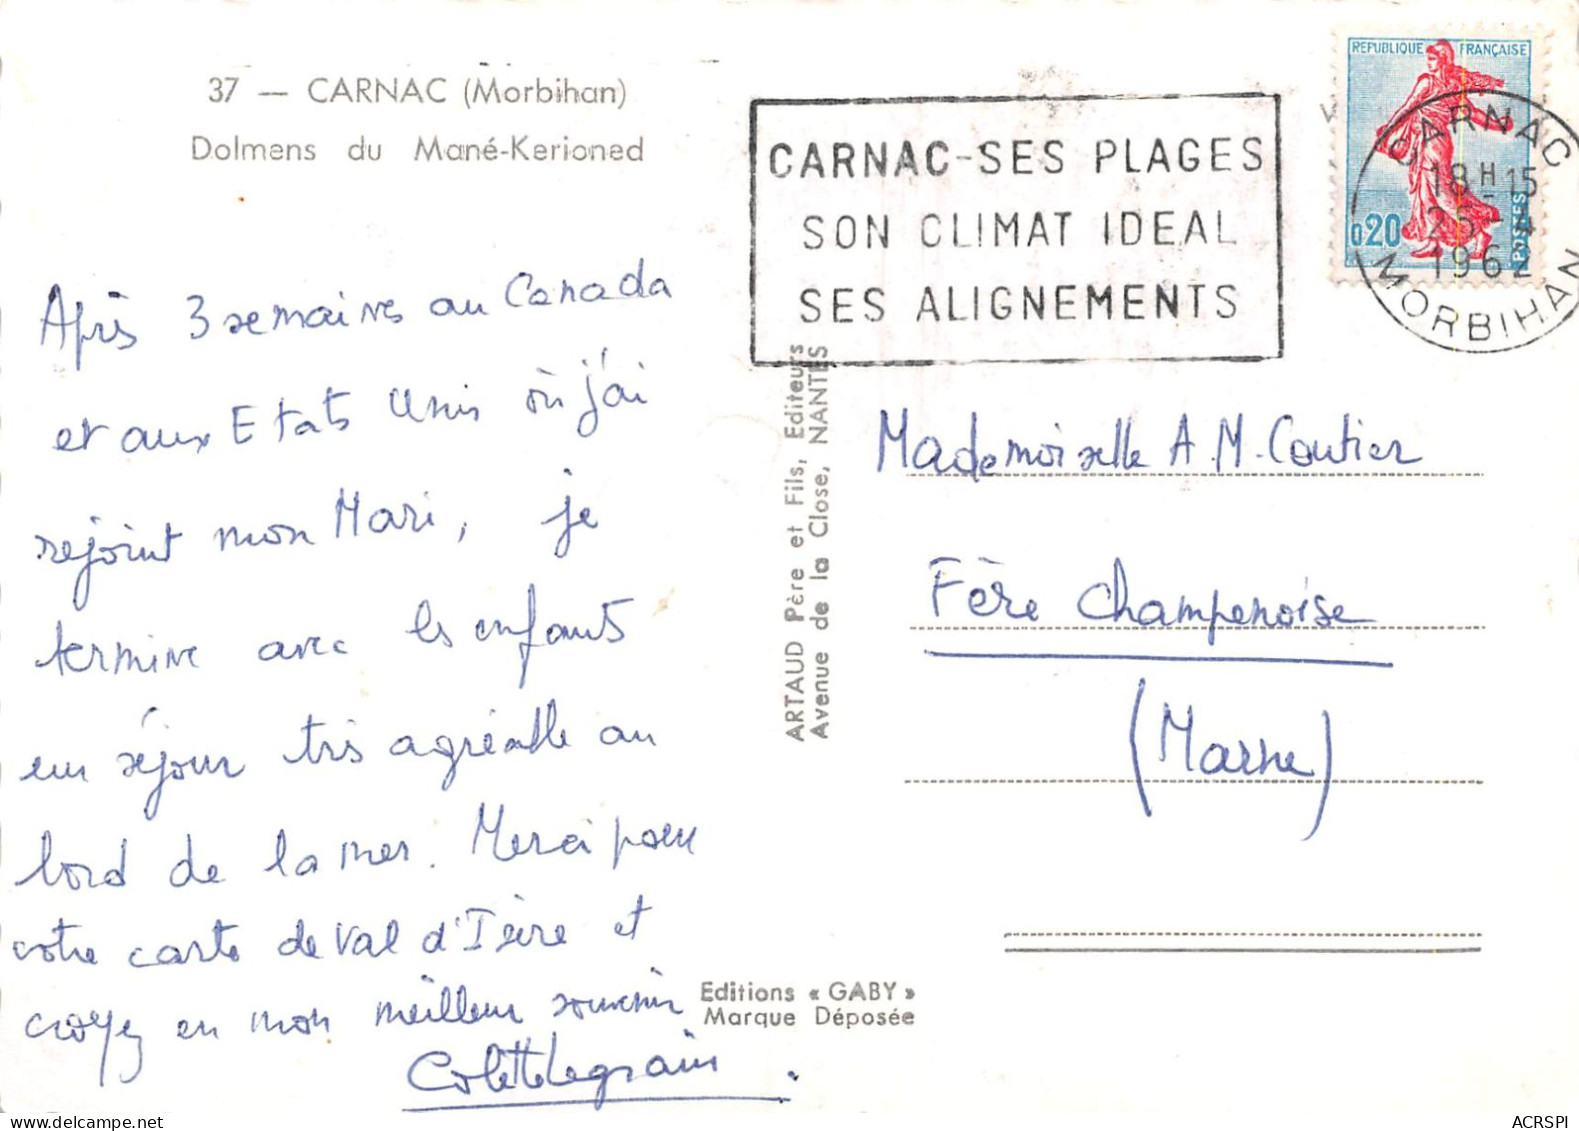 37 — CARNAC (Morbihan)
Dolmens du Mané-Kerioned
Après 3 semaines au Canada
et aux Etats Unis où j'ai
rejoint mon Mari, je
termine avec les enfants
un séjour très agréable au
bord de la mer. Merci pour
votre carte de Val d'Isère et
croyez en mon meilleur souvenir
Colette Legrain
ARTAUD Père et Fils, Editeurs
Avenue de la Close, NANTES
Editions « GABY »
Marque Déposée
CARNAC-SES PLAGES
SON CLIMAT IDEAL
SES ALIGNEMENTS
REPUBLIQUE FRANÇAISE
0,20
POSTES
CARNAC
18H15
25-4
1962
MORBIHAN
Mademoiselle A.M. Coutier
Fère Champenoise
(Marne)
ACRSPI